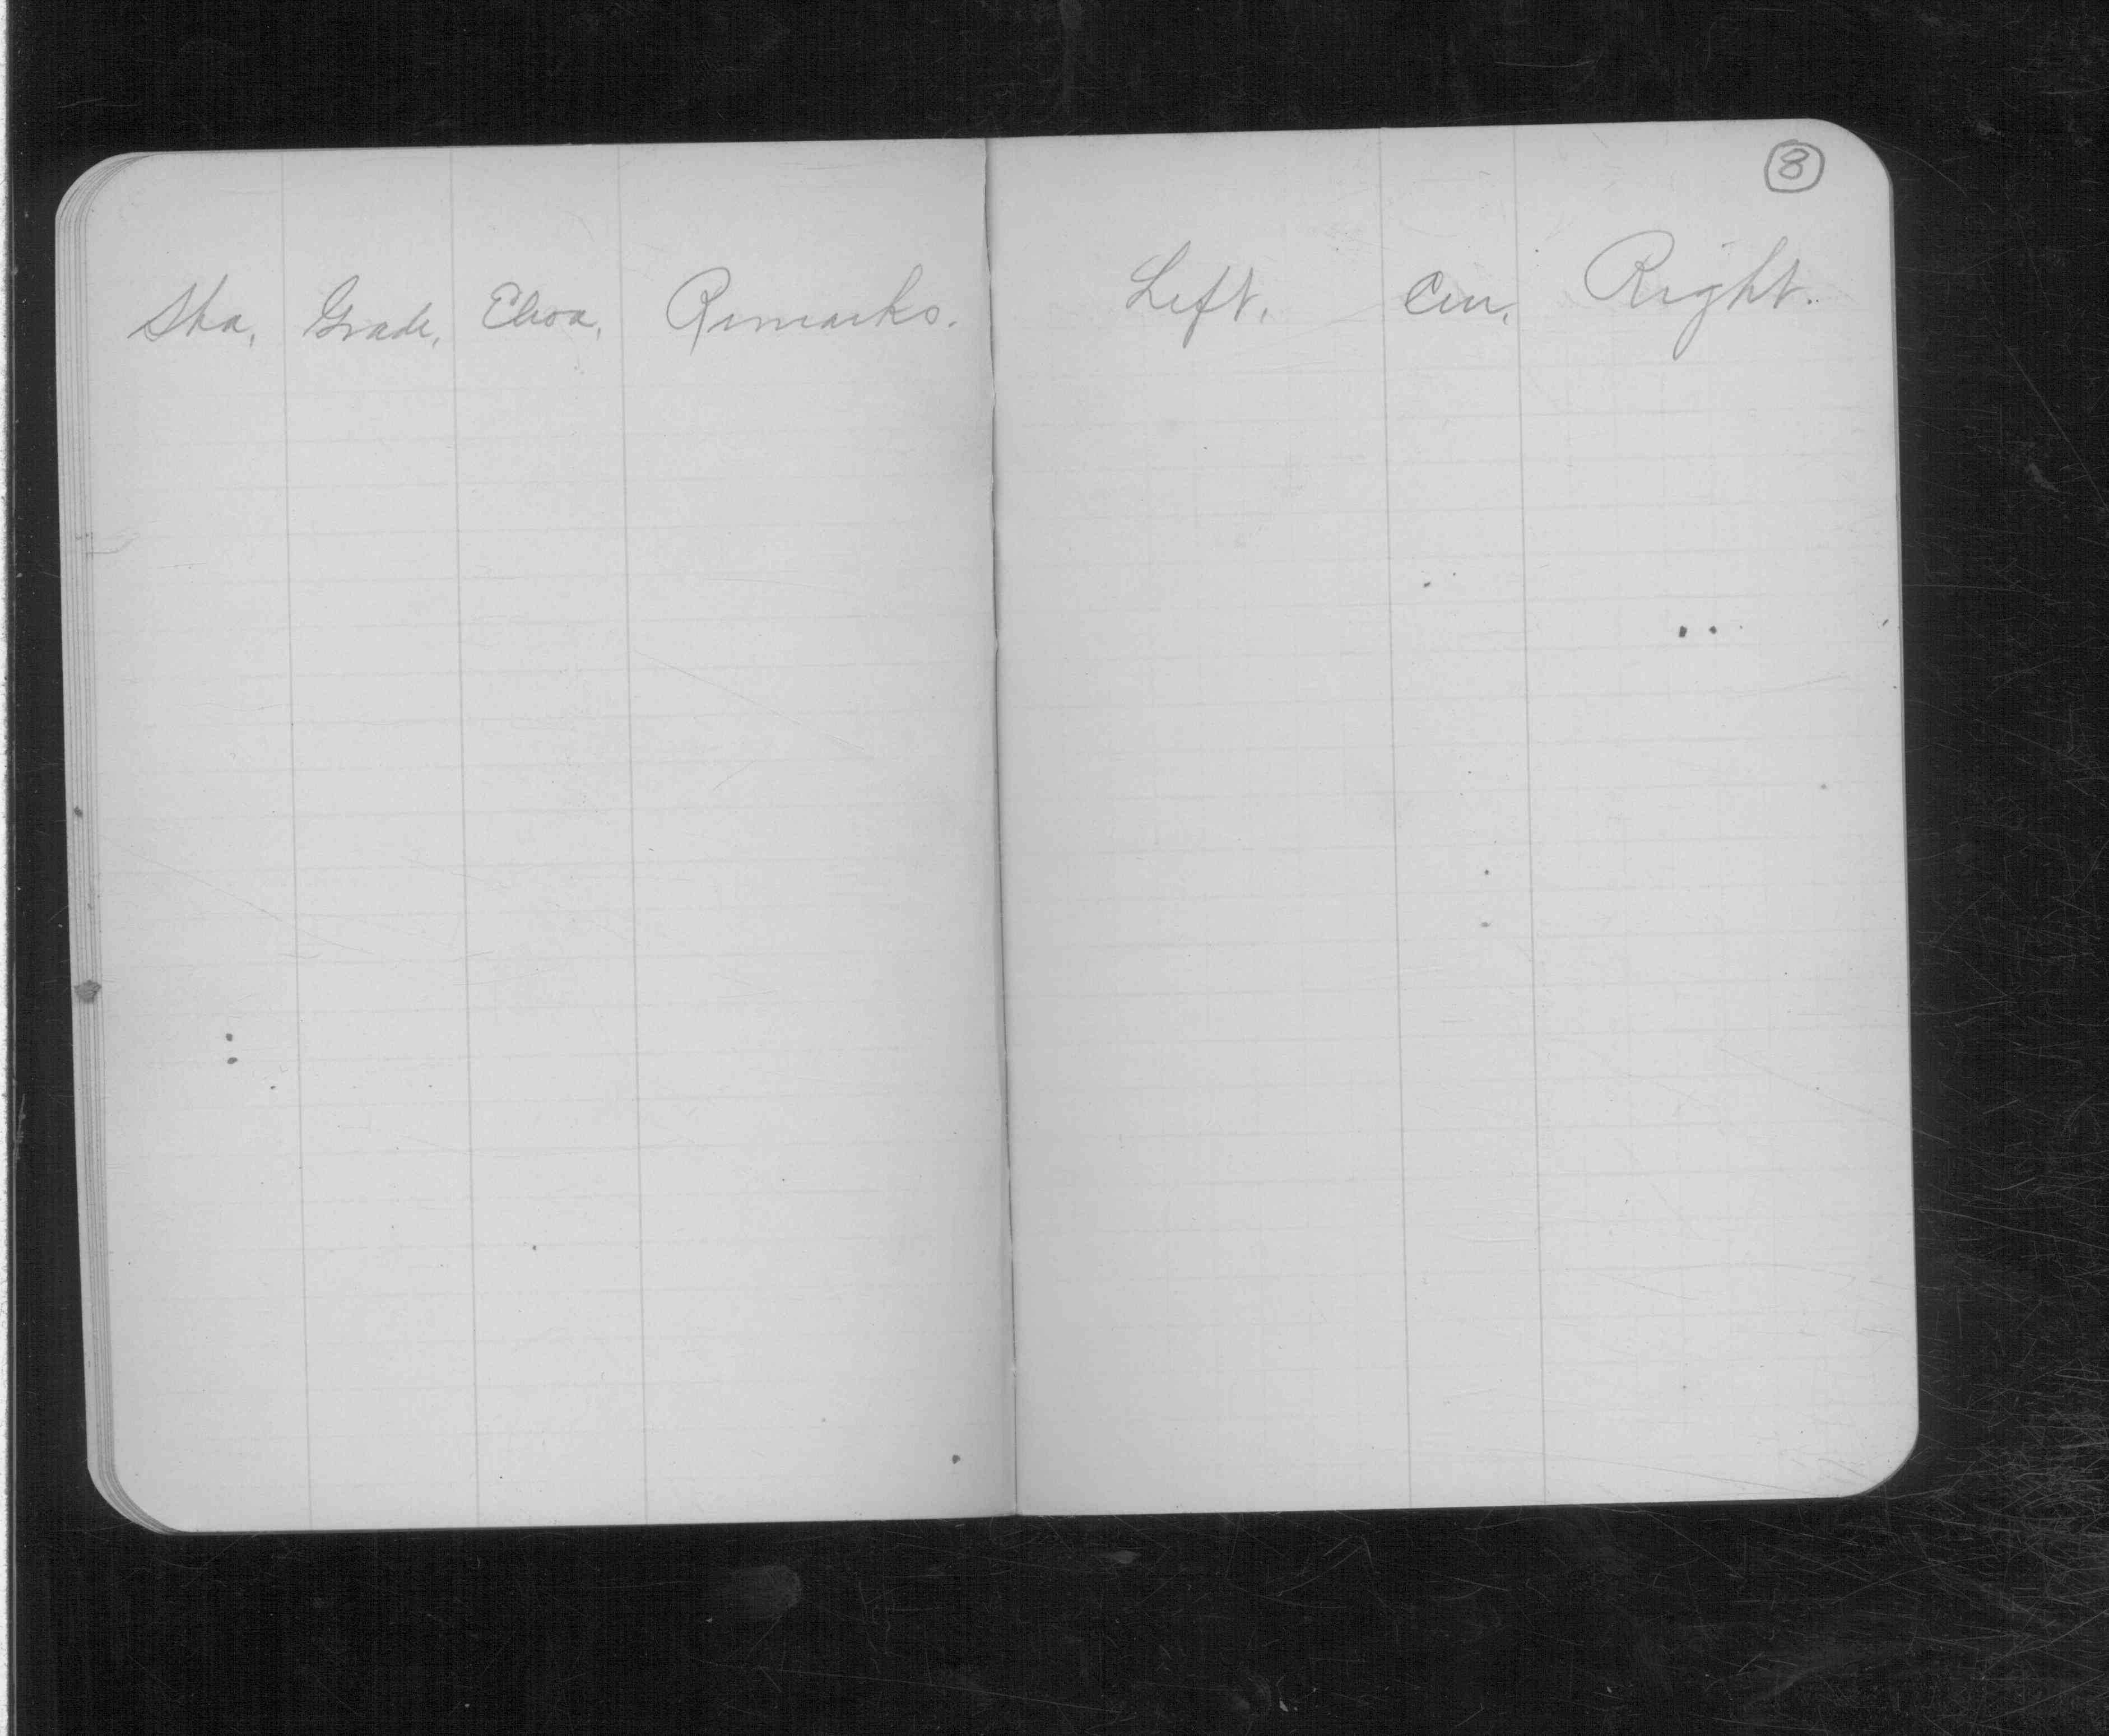 8
Sta. Grade. Eleva. Remarks.
Left. Cen. Right.